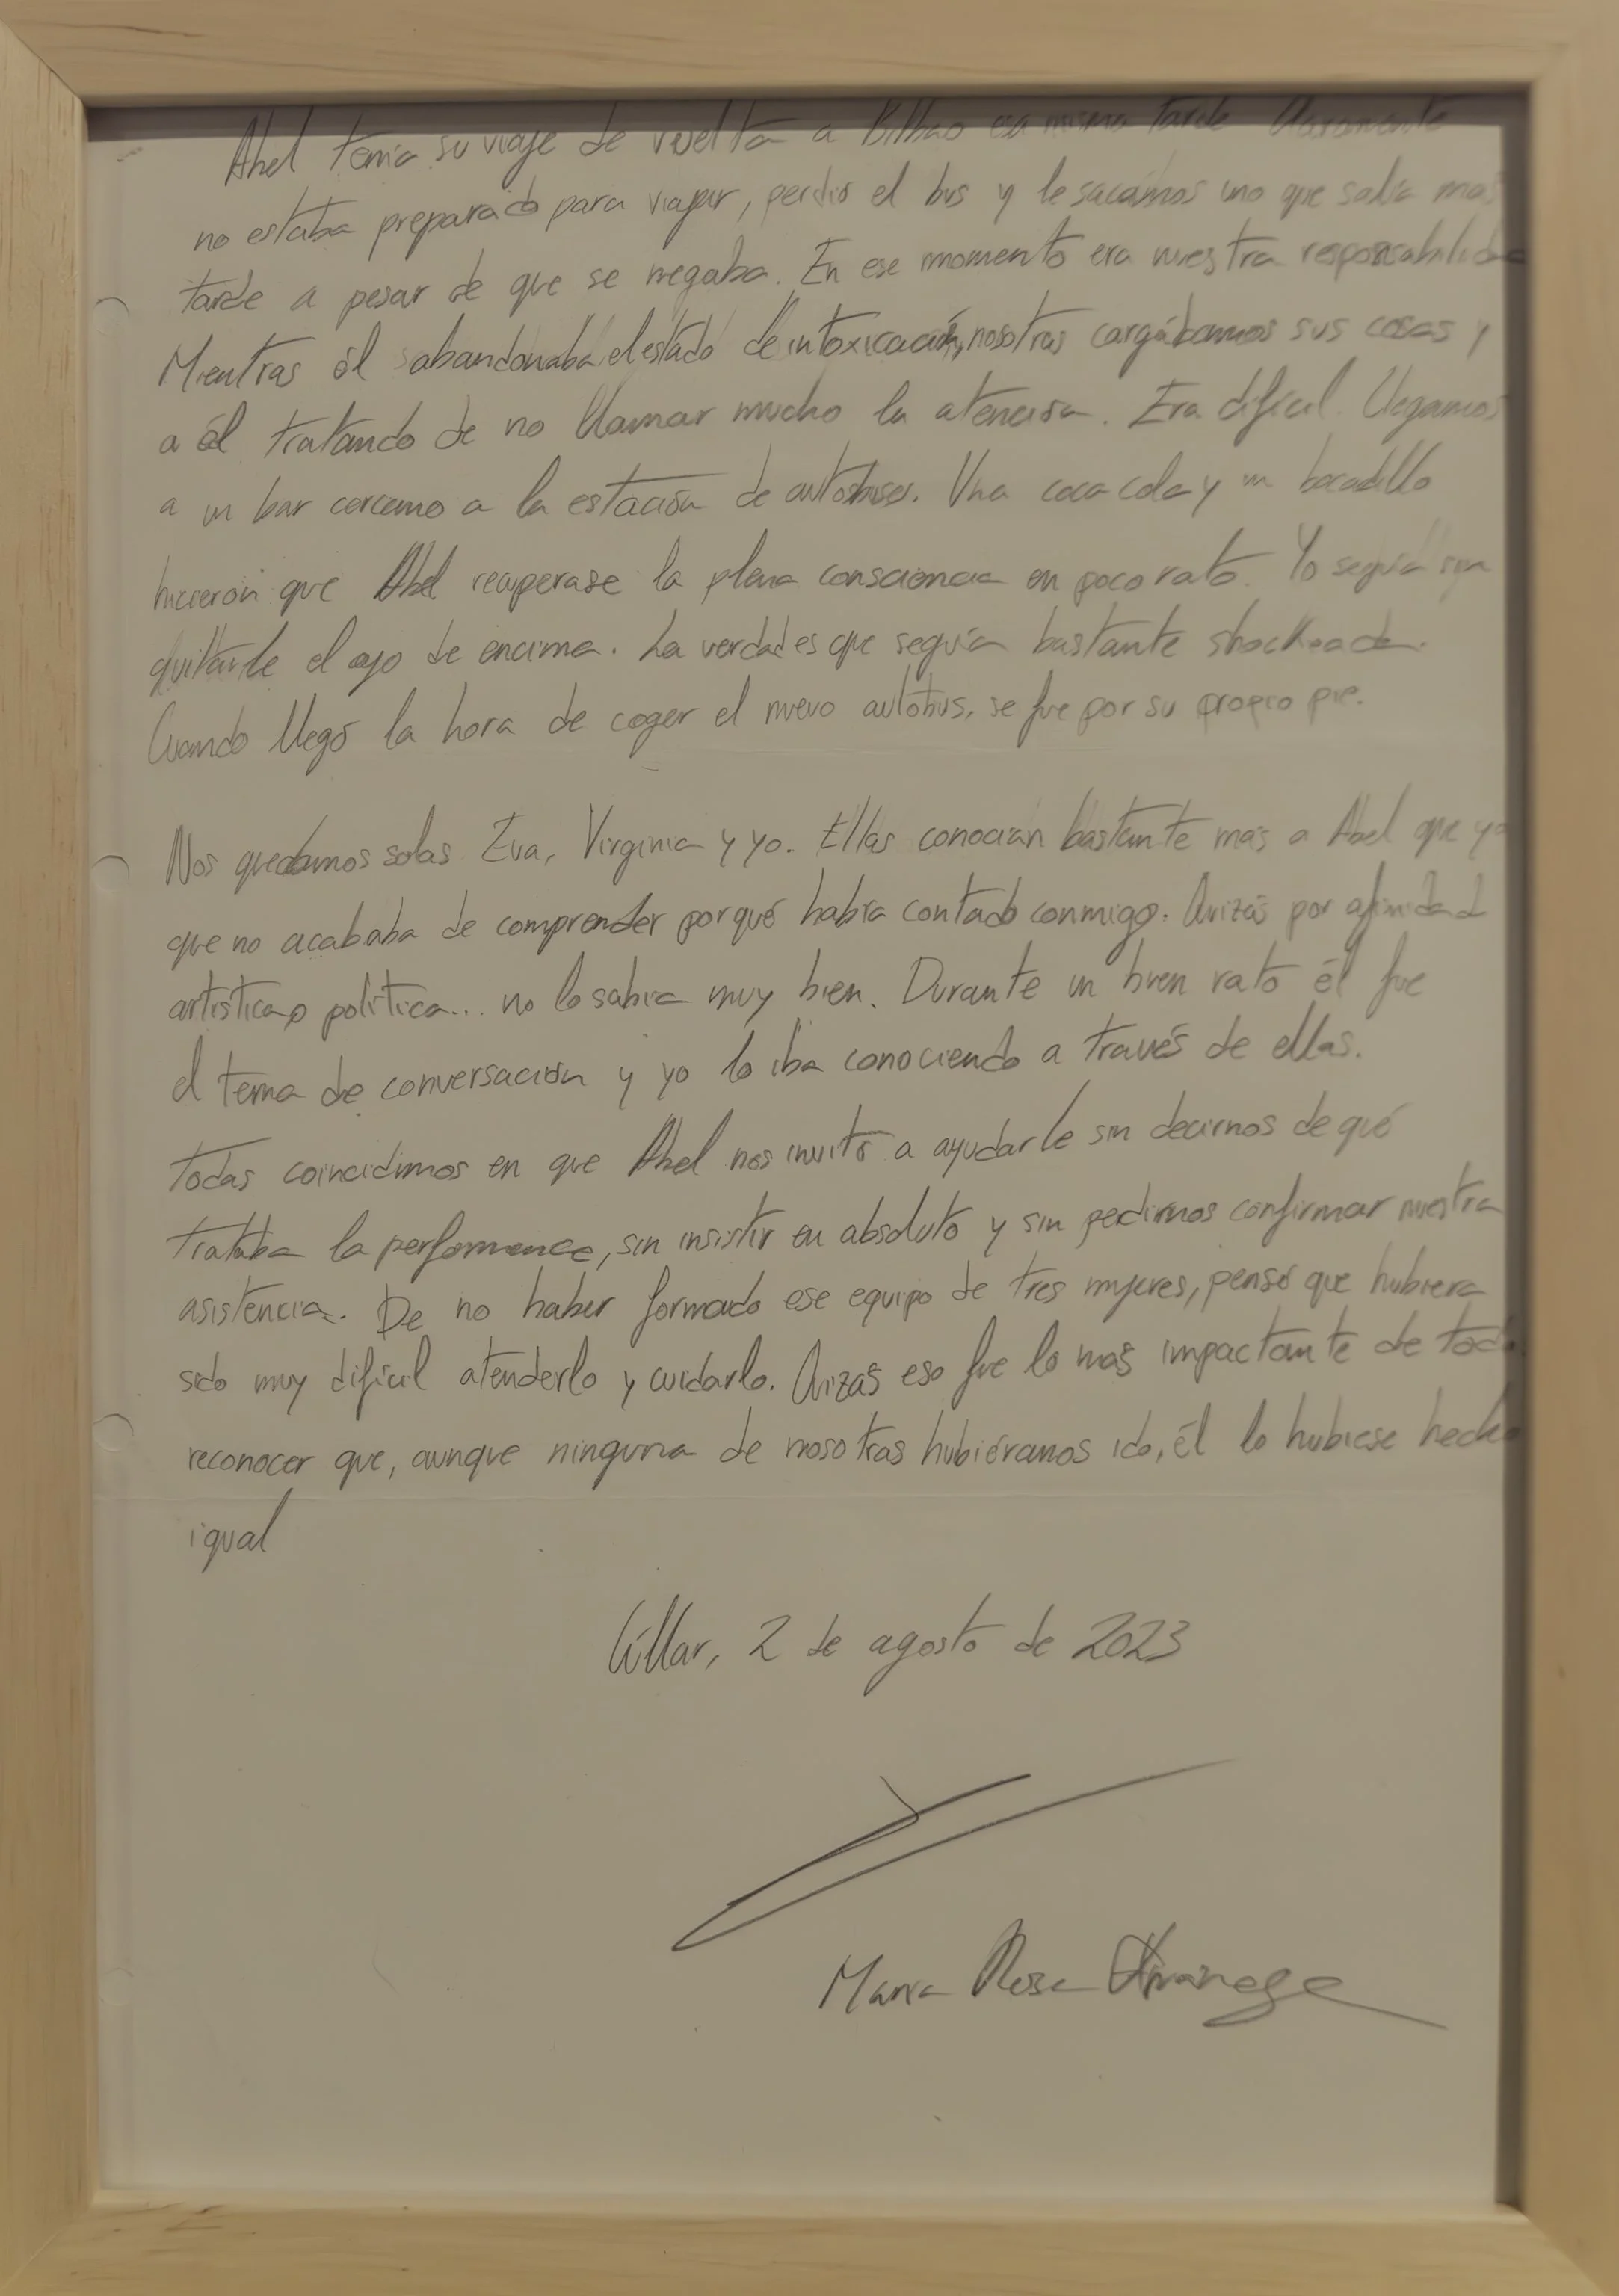 Abel tenía su viaje de vuelta a Bilbao esa misma tarde Claramente
no estaba preparado para viajar, perdió el bus y le sacamos uno que salía más
tarde a pesar de que se negaba. En ese momento era nuestra responsabilidad
Mientras él abandonaba el estado de intoxicación, nosotras cargábamos sus cosas y
a él tratando de no llamar mucho la atención. Era difícil. Llegamos
a un bar cercano a la estación de autobuses. Una coca cola y un bocadillo
hicieron que Abel recuperase la plena consciencia en poco rato. Yo seguía sin
quitarle el ojo de encima. La verdad es que seguía bastante shockeada.
Cuando llegó la hora de coger el nuevo autobus, se fue por su propio pie.
Nos quedamos solas Eva, Virginia y yo. Ellas conocían bastante más a Abel que yo
que no acababa de comprender porqué había contado conmigo. Quizás por afinidad
artística o política... no lo sabía muy bien. Durante un buen rato él fue
el tema de conversación y yo lo iba conociendo a través de ellas.
Todas coincidimos en que Abel nos invitó a ayudarle sin decirnos de qué
trataba la performance, sin insistir en absoluto y sin pedirnos confirmar nuestra
asistencia. De no haber formado ese equipo de tres mujeres, pensé que hubiera
sido muy difícil atenderlo y cuidarlo. Quizás eso fue lo más impactante de todo
reconocer que, aunque ninguna de nosotras hubiéramos ido, él lo hubiese hecho
igual
Cúllar, 2 de agosto de 2023
María Rosa